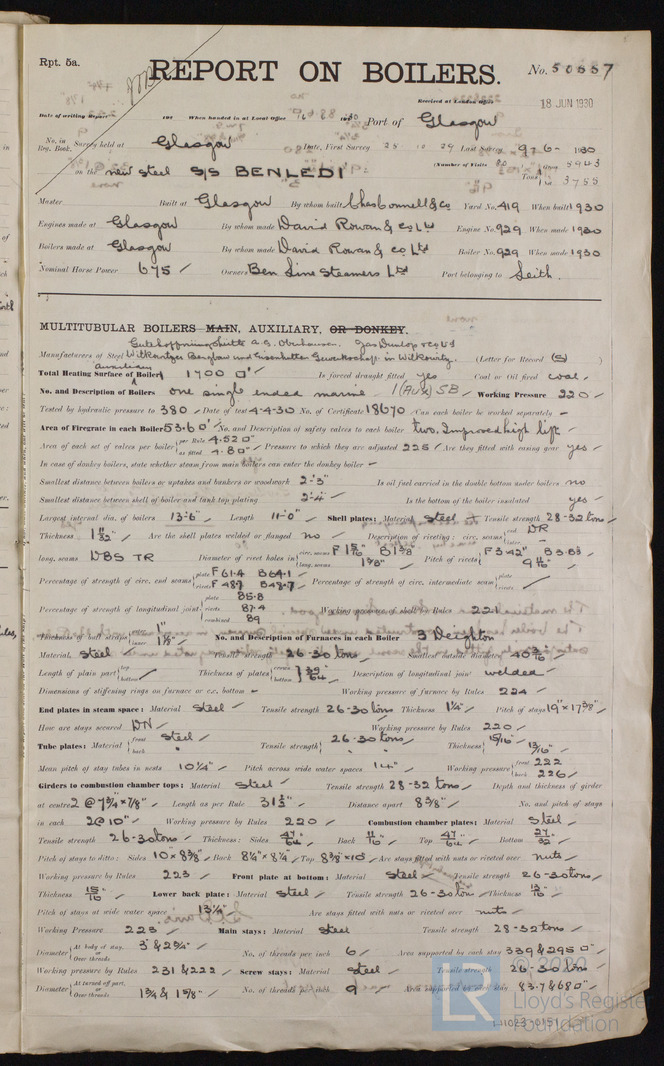 Rpt. 5a.
REPORT ON BOILERS.
No. 50557
Received at London Office
18 JUN 1930
Date of writing Report 192 When handed in at Local Office 1930 Port of Glasgow
No. in Reg. Book. Survey held at Glasgow Date, First Survey 25 10 29 Last Survey 9-6- 1930
on the new steel S/S BENLEDI (Number of Visits 80 Tons Gross 5943 Net 3755
Master Built at Glasgow By whom built Chas Connell & Co Yard No. 419 When built 1930
Engines made at Glasgow By whom made David Rowan & Co Ltd Engine No. 929 When made 1930
Boilers made at Glasgow By whom made David Rowan & Co Ltd Boiler No. 929 When made 1930
Nominal Horse Power 675 Owners Ben Line Steamers Ltd Port belonging to Leith.
MULTITUBULAR BOILERS MAIN, AUXILIARY, OR DONKEY.
Gutehoffnungshutte A.G. Oberhausen. Jas Dunlop & Co Ltd
Manufacturers of Steel Witkowitzer Bergbau und Eisenhutten Gewerkschaft in Witkowitz. (Letter for Record (S) )
Total Heating Surface of Auxiliary Boiler 1700 □' Is forced draught fitted yes Coal or Oil fired coal
No. and Description of Boilers one single ended marine 1(Aux) SB Working Pressure 220
Tested by hydraulic pressure to 380 Date of test 4-4-30 No. of Certificate 18670 Can each boiler be worked separately -
Area of Firegrate in each Boiler 53.60' No. and Description of safety valves to each boiler two. Improved high lift
Area of each set of valves per boiler per Rule 4.52□" as fitted 4.80" Pressure to which they are adjusted 225 Are they fitted with easing gear yes
In case of donkey boilers, state whether steam from main boilers can enter the donkey boiler -
Smallest distance between boilers or uptakes and bunkers or woodwork 2'-3" Is oil fuel carried in the double bottom under boilers no
Smallest distance between shell of boiler and tank top plating 2'-4" Is the bottom of the boiler insulated yes
Largest internal dia. of boilers 13'-6" Length 11'-0" Shell plates: Material Steel Tensile strength 28-32 tons
Thickness 1 11/32" Are the shell plates welded or flanged no Description of riveting: circ. seams end DR
long. seams DBS TR Diameter of rivet holes in circ. seams F 1 5/16" B 1 3/8" long. seams 1 3/8" Pitch of rivets F 3.42" B 3.83 9 11/16"
Percentage of strength of circ. end seams plate F 61.4 B 64.1 rivets F 48.7 B 48.7 Percentage of strength of circ. intermediate seam plate rivets
Percentage of strength of longitudinal joint plate 85.8 rivets 87.4 combined 89 Working pressure of shell by Rules 221
Thickness of butt straps outer 1" inner 1 1/8" No. and Description of Furnaces in each Boiler 3 Deighton
Material Steel Tensile strength 26-30 tons Smallest outside diameter 40 3/16"
Length of plain part top bottom Thickness of plates crown bottom 35/64" Description of longitudinal joint welded
Dimensions of stiffening rings on furnace or c.c. bottom - Working pressure of furnace by Rules 224
End plates in steam space: Material Steel Tensile strength 26-30 tons Thickness 1 1/4" Pitch of stays 19" x 17 3/8"
How are stays secured DN Working pressure by Rules 220
Tube plates: Material front Steel back " Tensile strength 26-30 tons " Thickness 15/16" 13/16"
Mean pitch of stay tubes in nests 10 1/4" Pitch across wide water spaces 14" Working pressure front 222 back 226
Girders to combustion chamber tops: Material Steel Tensile strength 28-32 tons Depth and thickness of girder
at centre 2 @ 7 3/4" x 7/8" Length as per Rule 31 1/2" Distance apart 8 3/8" No. and pitch of stays
in each 2 @ 10" Working pressure by Rules 220 Combustion chamber plates: Material Steel
Tensile strength 26-30 tons Thickness: Sides 47/64 Back 11/16" Top 47/64 Bottom 27/32
Pitch of stays to ditto: Sides 10" x 8 3/8" Back 8 1/4" x 8 1/4" Top 8 3/8" x 10" Are stays fitted with nuts or riveted over nuts
Working pressure by Rules 223 Front plate at bottom: Material Steel Tensile strength 26-30 tons
Thickness 15/16 Lower back plate: Material Steel Tensile strength 26-30 tons Thickness 13/16"
Pitch of stays at wide water space 13 1/4" Are stays fitted with nuts or riveted over nuts
Working Pressure 223 Main stays: Material Steel Tensile strength 28-32 tons
Diameter At body of stay, or Over threads 3" & 2 3/4" No. of threads per inch 6 Area supported by each stay 339 & 295 □"
Working pressure by Rules 231 & 222 Screw stays: Material Steel Tensile strength 26-30 tons
Diameter At turned off part, or Over threads 1 3/4 & 1 5/8" No. of threads per inch 9 Area supported by each stay 83.7 & 68□"
© 2020
LR
Lloyd's Register
Foundation
W1023-0151